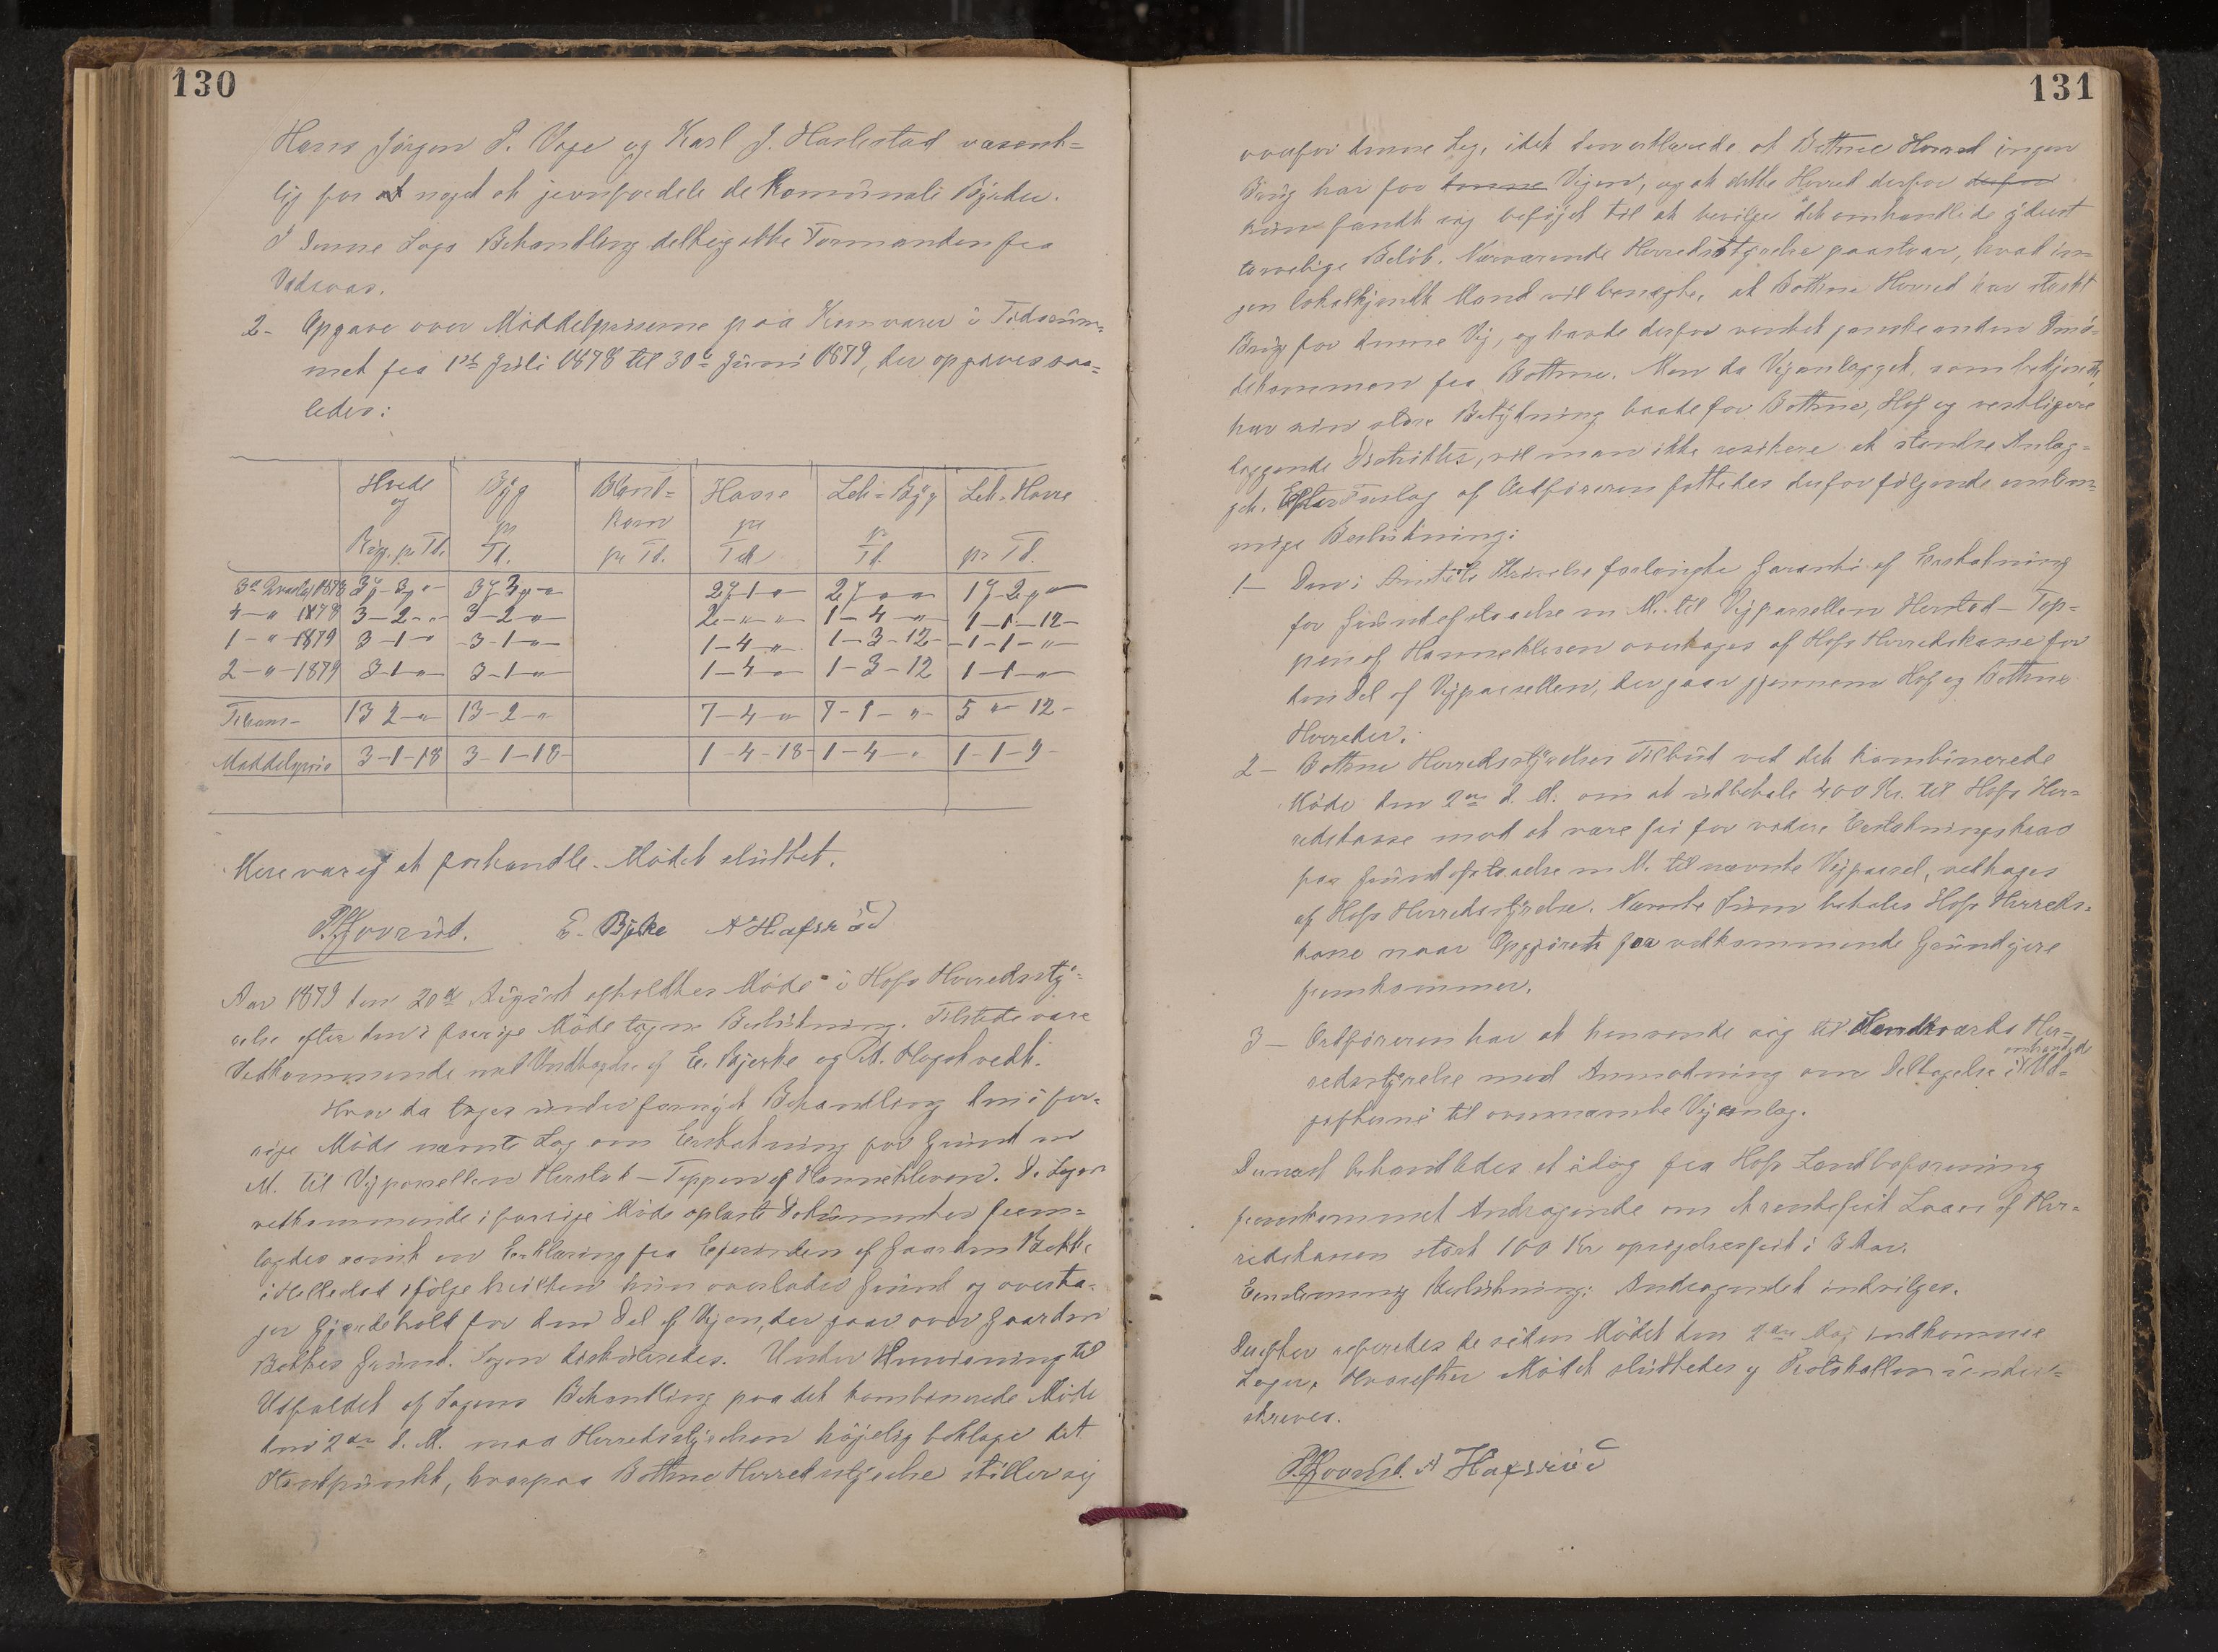 130
Hans Jörgen P. Voge og Karl J. Haslestad væsent=
lig for at noget at jevnfordele de Komünale Byrder.
I denne Sags Behandling deltog ikke Formanden fra
Vadsaas.
2- Opgave over Middelpriserne paa Kornvarer i Tidsrüm=
met fra 1ste Jüli 1878 til 30te Jüni 1879, der opgives saa=
ledes:
Hvede og Rüg pr Td. Byg pr Td. Bland= korn pr Td. Havre pr Td Leie-Byg pr Td. Leie-Havre pr Td.
3die Qvartal 1878 3 3 " 3 3 " 2 1 " 2 " " 1 2 "
4- " 1878 3-2-" 3-2-" 2-"-" 1-4-" 1-1-12-
1-"-1879 3-1-" 3-1-" 1-4-" 1-3-12- 1-1-"-
2-"-1879 3-1-" 3-1-" 1-4-" 1-3-12 1-1-"
Tilsam- 13 2-" 13-2-" 7-4-" 7-1-"- 5 "- 12-
Middelpris 3-1-18 3-1-18- 1-4-18- 1-4-" 1-1-9-
Mere var ej at forhandle. Mödet slüttet.
E. Bjerke A Hafsröd
Aar 1879 den 20de Aügüst afholdtes Möde i Hofs Herredssty=
relse efter den i forrige Möde tagne Beslütning. Tilstede vare
Vedkommende med Undtagelse af E. Bjerke og M. Hogstvedt.
Hvor da toges ünder fornyet Behandling den i for=
rige Möde nævnte Sag om Erstatning for Gründ m
M. til Vejparsellen Herstad - Toppen af Hanekleven. De Sagen
vedkommende i forrige Möde oplæste Dokümenter frem=
lagdes samt en Erklæring fra Ejerinden af Gaarden Bakke
i Hillestad ifölge hvilken hün overlader Gründ og overta=
ger Gjærdehold for den Del af Vejen, der gaar over Gaarden
Bakkes Gründ. Sagen disküteredes. Under Henvisning til
Udfaldet af Sagens Behandling paa det kombinerede Möde
den 2den d. M. maa Herredsstyrelsen höjelig beklage det
Standpünkt, hvorpaa Bottne Herredsstyrelse stiller sig
131
overfor denne Sag, idet den erklærede at Bottne Herred ingen
Brüg har for denne Vejen, og at dette Herred derfor derfor
kün fandt sig beföjet til at bevilge det omhandlede yderst
tarvelige Belöb. Nærværende Herredsstyrelse paastaar, hvad in=
gen lokalkjendt Mand vil benægte, at Bottne Herred har stærkt
Brüg for denne Vej, og havde derfor ventet ganske anden Imö=
dekommen fra Bottne. Men da Vejanlægget, som bekjendt,
har sin store Betydning baade for Bottne, Hof og vestligere
liggende Distrikter, vil man ikke risikere at standse Anlæg=
get. Efter Forslag af Ordföreren fattedes derfor fölgende enstem=
mige Beslütning:
1- Den i Amtets Skrivelse forlangte Garanti af Erstatning
for Gründafstaaelse m M. til Vejparsellen Herstad - Top=
pen af Hanekleven overtages af Hofs Herredskasse for
den Del af Vejparsellen, der gaar gjennem Hof og Bottne
Herreder.
2- Bottne Herredsstyrelses Tilbüd ved det kombinerede
Möde den 2den d. M. om at üdbetale 400 Kr. til Hofs Her=
redskasse mod at være fri for videre Erstatningskrav
for Gründafstaaelse m M. til nævnte Vejparsel, vedtages
af Hofs Herredsstyrelse. Nævnte Süm betales Hofs Herreds=
kasse naar Opgjörets paa vedkommende Gründejere
fremkommer.
3- Ordföreren har at henvende sig til Sandsværds Her=
redsstyrelse med Anmodning om Deltagelse i omhandlede Üd=
gifterne til ovennævnte Vejanlæg.
Dernæst behandledes et idag fra Hofs Landboforening
fremkommet Andragende om et rentefrit Laan af Her=
redskassen stort 100 Kr opsigelsesfrit i 3 Aar.
Enstemmig Beslütning: Andragendet indvilges.
Derefter refereredes de siden Mödet den 2den Maj indkomne
Sager, Hvorefter Mödet slüttedes og Protokollen ünder=
skreves.
A Hafsröd